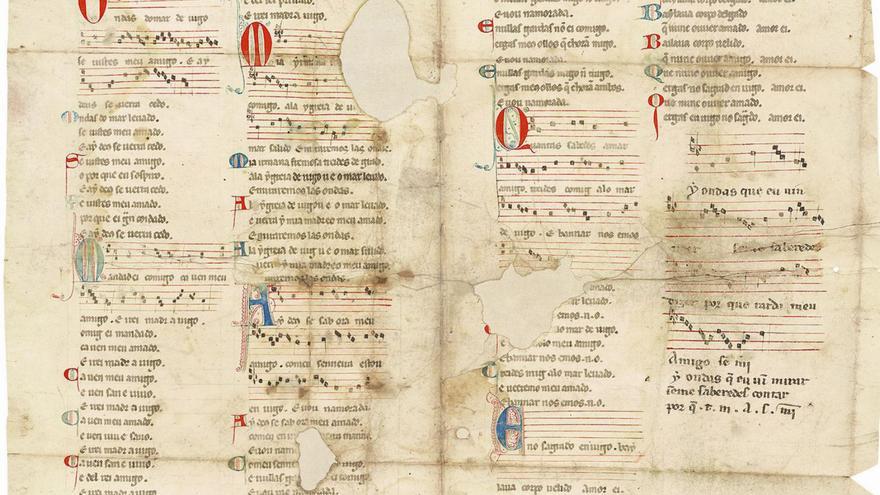 Ondas do mar de vigo
se vistes meu amigo. E ay
deus se verra cedo.
Ondas do mar levado.
se vistes meu amado.
E ay deus se verra cedo.
Se vistes meu amigo.
o por que eu sospiro.
E ay deus se verra cedo.
Se vistes meu amado.
por que ei gran coidado.
E ay deo se verra cedo.
Mandad ei comigo ca ven meu
amigo. E irei madr a vigo.
comig ei mandado
ca ven meu amado.
E irei madr a vigo.
Ca ven meu amigo.
e ven san e vivo.
E irei madr a vigo
Ca ven meu amado.
e ven viv e sano.
E irei madr a vigo.
Ca ven san e vivo.
e del rei amigo
E irei madr a vigo
E irei madr a vigo.
Mia yrmana
comigo. a la ygreia de vi
mar salido. E miraremos las ondas.
Mia yrmana fremosa treides de grado.
a la ygreia de vigo u e o mar levado.
E miraremos las ondas.
A la ygreia de vigo u e o mar levado.
e verra y mia madre o meu amado.
E miraremos las ondas.
A la ygreia de vig u e o mar salido.
e verra y mia madre o meu amigo.
E miraremos las ondas.
Ay deo se sab ora meu
amigo. comeu senneira estou
en vigo. E vou namorada.
Ay deo se sab ora meu amado.
comeu en vigo senneira manno.
E vou namorada.
Comeu senneira
E vou namorada.
E nullas gardas non ei comigo.
ergas meus ollos que chora migo.
E vou namorada.
E nullas gardas migo non trago.
ergas meus ollos que chora ambos.
E vou namorada.
Quantas sabedes amar
amigo. treides comig a lo mar
de vigo. E bannar nos emos
levado.
emos. n. o.
lo mar de vigo.
veeremo lo meu amigo.
E bannar nos emos. n. o.
Treides mig a lo mar levado.
e veeremo meu amado.
E bannar nos emos. n. o.
Eno sagrado en vigo. bay
lava corpo velido amor ei.
Baylava corpo delgado
que nunc ouver amado. amor ei.
Bailava corpo velido.
que nunc ouver amigo. amor ei.
Que nunc ouver amigo.
ergas no sagrad en vigo. amor ei.
Que nunc ouver amado.
ergas en vigo no sagrado. amor ei.
Ay ondas que eu vin
veer se me saberedes
dizer por que tarda meu
amigo se mi
Ay ondas que eu vin mirar
se me saberedes contar
por q. t. m. A. s. mi